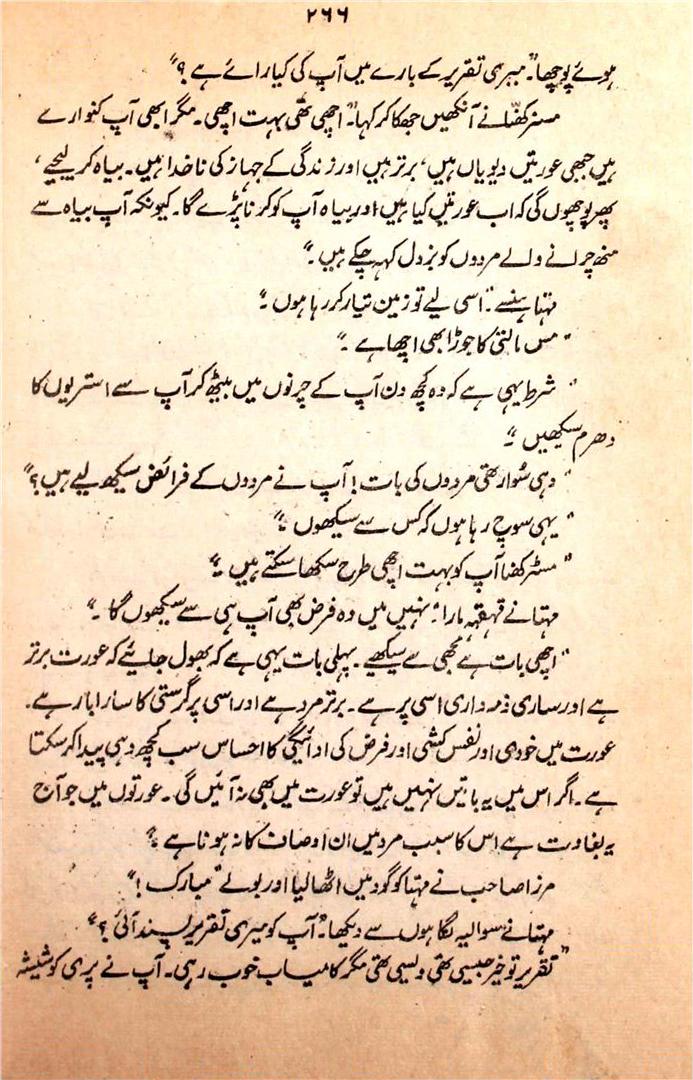 ۲۶۶
ہوئے پوچھا۔ "میری تقریر کے بارے میں آپ کی کیا رائے ہے؟"
مسز کھنّا نے آنکھیں جھکا کر کہا۔ "اچھی تھی بہت اچھی۔ مگر ابھی آپ کنوارے
ہیں جبھی عورتیں دیویاں ہیں، برتر ہیں اور زندگی کے جہاز کی ناخدا ہیں۔ بیاہ کر لیجیے،
پھر پوچھوں گی کہ اب عورتیں کیا ہیں اور بیاہ آپ کو کرنا پڑے گا۔ کیونکہ آپ بیاہ سے
منھ چرانے والے مردوں کو بزدل کہہ چکے ہیں۔"
مہتا ہنسے۔ "اسی لیے تو زمین تیار کر رہا ہوں۔"
"مس مالتی کا جوڑا بھی اچھا ہے۔"
"شرط یہی ہے کہ وہ کچھ دن آپ کے چرنوں میں بیٹھ کر آپ سے استریوں کا
دھرم سیکھیں۔"
"وہی سُوارتھی مردوں کی بات! آپ نے مردوں کے فرائض سیکھ لیے ہیں؟"
"یہی سوچ رہا ہوں کہ کس سے سیکھوں۔"
"مسٹر کھنا آپ کو بہت اچھی طرح سکھا سکتے ہیں۔"
مہتا نے قہقہہ مارا۔ "نہیں میں وہ فرض بھی آپ ہی سے سیکھوں گا۔"
"اچھی بات ہے مجھی سے سیکھیے۔ پہلی بات یہی ہے کہ بھول جائیے کہ عورت برتر
ہے اور ساری ذمہ داری اسی پر ہے۔ برتر مرد ہے اور اسی پر گرستی کا سارا بار ہے۔
عورت میں خودی اور نفس کشی اور فرض کی ادائیگی کا احساس سب کچھ وہی پیدا کر سکتا
ہے۔ اگر اس میں یہ باتیں نہیں ہیں تو عورت میں بھی نہ آئیں گی۔ عورتوں میں جو آج
یہ بغاوت ہے اس کا سبب مرد میں ان اوصاف کا نہ ہونا ہے۔"
مرزا صاحب نے مہتا کو گود میں اٹھا لیا اور بولے "مبارک!"
مہتا نے سوالیہ نگاہوں سے دیکھا۔ "آپ کو میری تقریر پسند آئی؟"
"تقریر تو خیر جیسی تھی ویسی تھی مگر کامیاب خوب رہی۔ آپ نے پری کو شیشہ